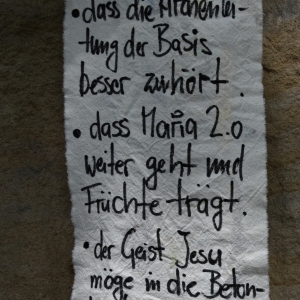 • dass die Kirchenlei-
tung der Basis
besser zuhört.
• dass Maria 2.0
weiter geht und
Früchte trägt.
• der Geist Jesu
möge in die Beton-